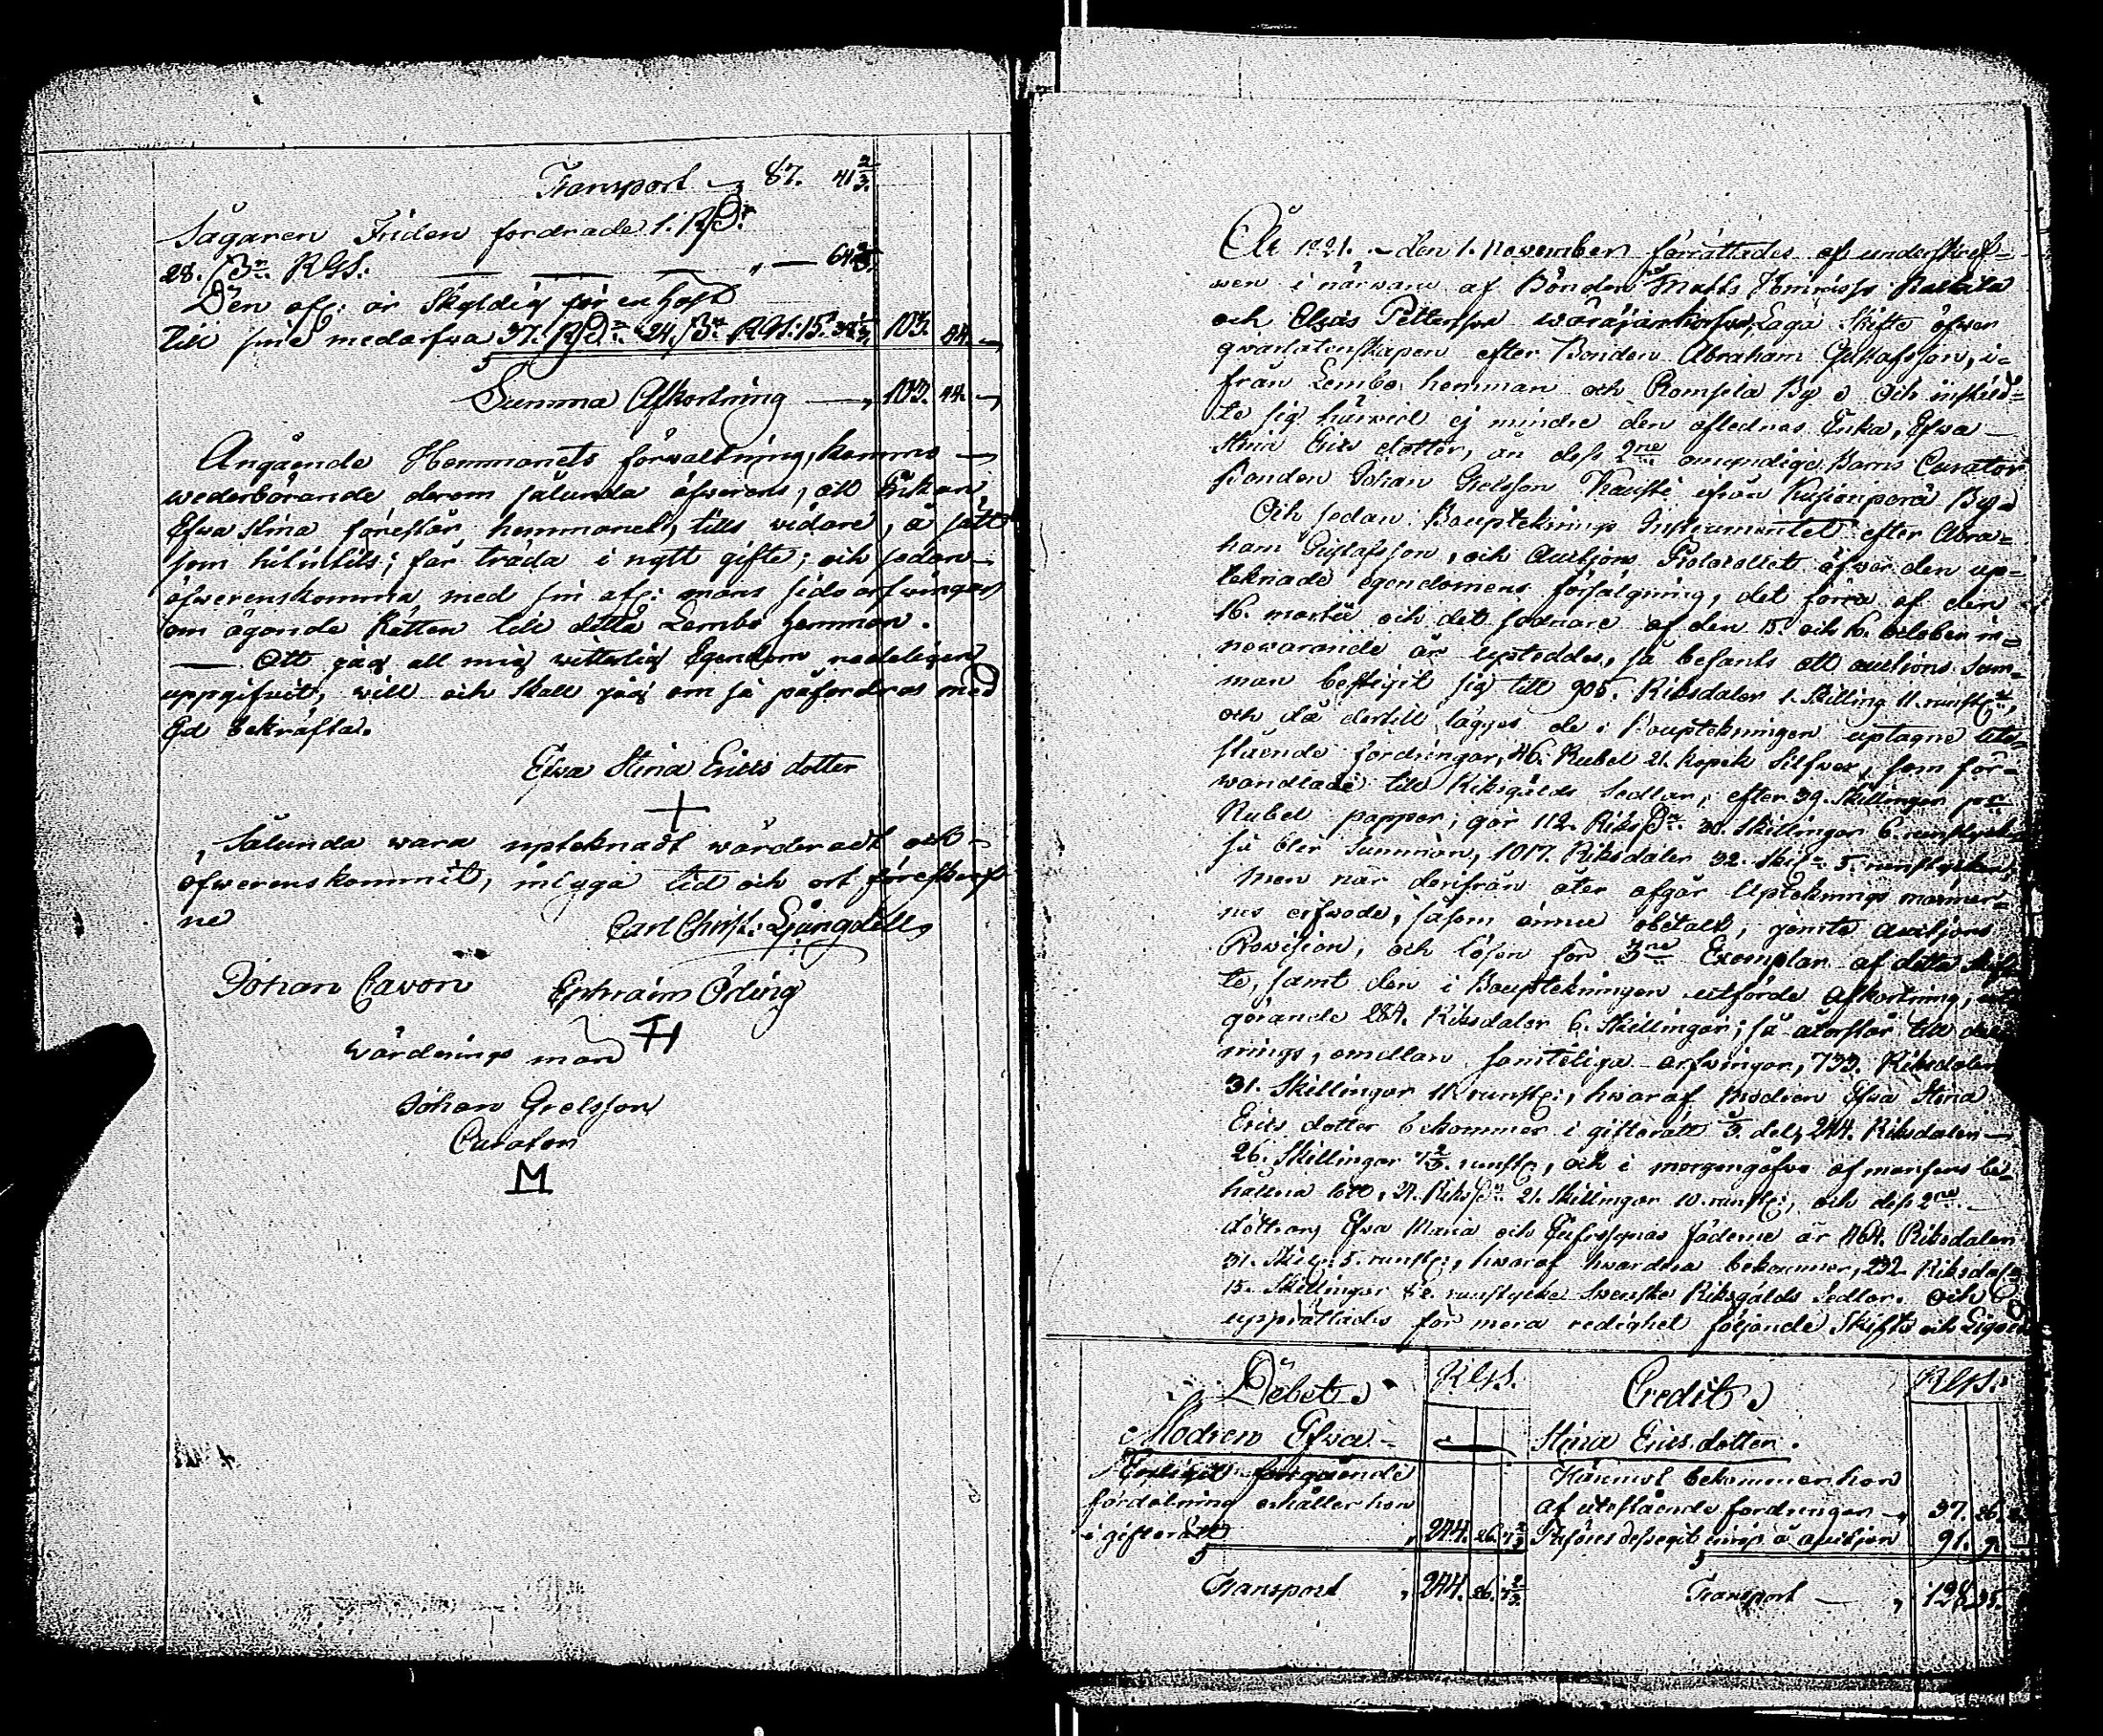 Transport 87. 41 2/3.
Sågaren Friden fordrade 1. RD:r
28. RGS: 64
Den afl: är skyldig för en häst
till sine medarfva 37. RD:r 24. RGS: 15. 103. 44.
Summa Afkortning 103. 44.
Angående Hemmanets förvaltning, kommo
wederbörande derom sålunda öfwerens, att Enkan
Efwa Stina förestår hemmanet, tills vidare, å sätt
som hitintils; får träda i nytt gifte; och sedan
öfwerenskomma med sin afl: mans sido arfwingar
om ägande Rätten till detta Lembo hemman.
Att jag all mig witterlig Egendom redeligen
uppgifvit, will och skall jag om så påfordras med
Ed bekräfta.
Efwa Stina Erics dotter
Sålunda wara upteknadt wärderadt och
öfwerenskommit, intyga tid och ort föreskref-
ne
Carl Christ: Ljungdell
Johan Cavon Ephraim Örling
H
Wärderings män
Johan Grelsson
Curator
M
År 1821. den 1. November förrättades af underskref-
wen i närvaro af Bönderne Matts Henriksson
och Elias Pettersson Laga Skifte öfwer
qwarlatenskapen efter Bonden Abraham Gustafsson, i-
från Lembo hemman och By. Och infunn-
te sig härwid ej mindre den aflednes Enka, Efwa
Stina Erics dotter, än dess 2ne omyndige Barns Curator
Bonden Johan Grelsson ifrån By.
Och sedan Bouptecknings Instrumentet efter Abra-
ham Gustafsson, och Auctions Protocollet öfwer den up-
teknade egendomens försäljning, det förra af den
16. martii och det sednare af den 15. och 16. October in-
newarande år upteddes, så befants att auctions Sum-
man bestigit sig till 905. Riksdaler 1. Skilling 11. runst:r,
och då dertill lägges de i Boupteckningen uptagne ute-
stående fordringar, 46. Rubel 21. kopek Silfwer, som för-
wandlade till Riksgälds Sedlar, efter 39. Skillingar pr
Rubel papper, gör 112. Riks 30. Skillingar 6. runstycken
så blir Summan, 1017. Riksdaler 32. Skil: 5. runstycken
men när derifrån åter afgår Upteknings männer-
nes arfwode, såsom ännu obetalt, jämte auctions
Provision, och lösen för 3ne Exemplar af detta Skif-
te, samt den i Boupteckningen utförde Afkortning,
görande 284. Riksdaler 6. Skillingar; så återstår till
nings, emellan samteliga arfwingar, 733. Riksdaler
31. Skillingar 11. runst:, hwaraf Modren Efwa Stina
Erics dotter bekommer i gifterätt 1/3. del, 244. Riksdaler
26. Skillingar 7 2/3. runst:, och i morgongåfwa af mansens be-
hållna lott, 24. Riks 21. Skillingar 10. runst:, och dess 2ne
döttrar Efwa Maria och fäderne är 464. Riksdaler
31. Skil: 5. runst:, hwaraf hwardera bekommer, 232. Riksdaler
15. Skillingar runstycke Swenska Riksgälds Sedlar. Och
upprättades för mera redighet följande Skifts och
Debet. RGS. Credit. RGS.
Modren Efwa Stina Erics dotter.
Enligit föregående
fördelning erhåller hon
i gifterätt 244. 26. 7 2/3
Transport 244. 26. 7 2/3
Härmot bekommer hon
af utestående fordringar 37. 26.
å auction 91. 9.
Transport 128. 35.